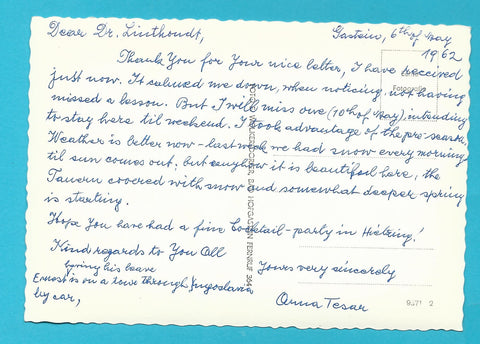 Dear Dr. Linthoudt,
Gastein, 6th of May
1962
Thank You for Your nice letter, I have received
just now. It calmed me down, when noticing, not having
missed a lesson. But I will miss one (10th of May), intending
to stay here til weekend. I took advantage of the pre-season.
Weather is better now - last week we had snow every morning
til sun comes out; but anyhow it is beautiful here, the
Tauern covered with snow and somewhat deeper spring
is starting.
Hope You have had a fine Cocktail-party in Hietzing!
Kind regards to You All
Yours very sincerely
Anna Tesar
Ernest is on a tour through Jugoslavia
by car,
having his leave
HOFGASTEIN FERNRUF 364
9571 2